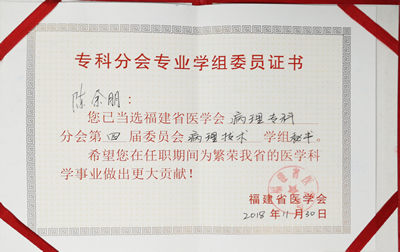 专科分会专业学组委员证书
陈余朋：
您已当选福建省医学会病理专科
分会第四届委员会病理技术学组秘书。
希望您在任职期间为繁荣我省的医学科
学事业做出更大贡献！
福建省医学会
2018年11月30日